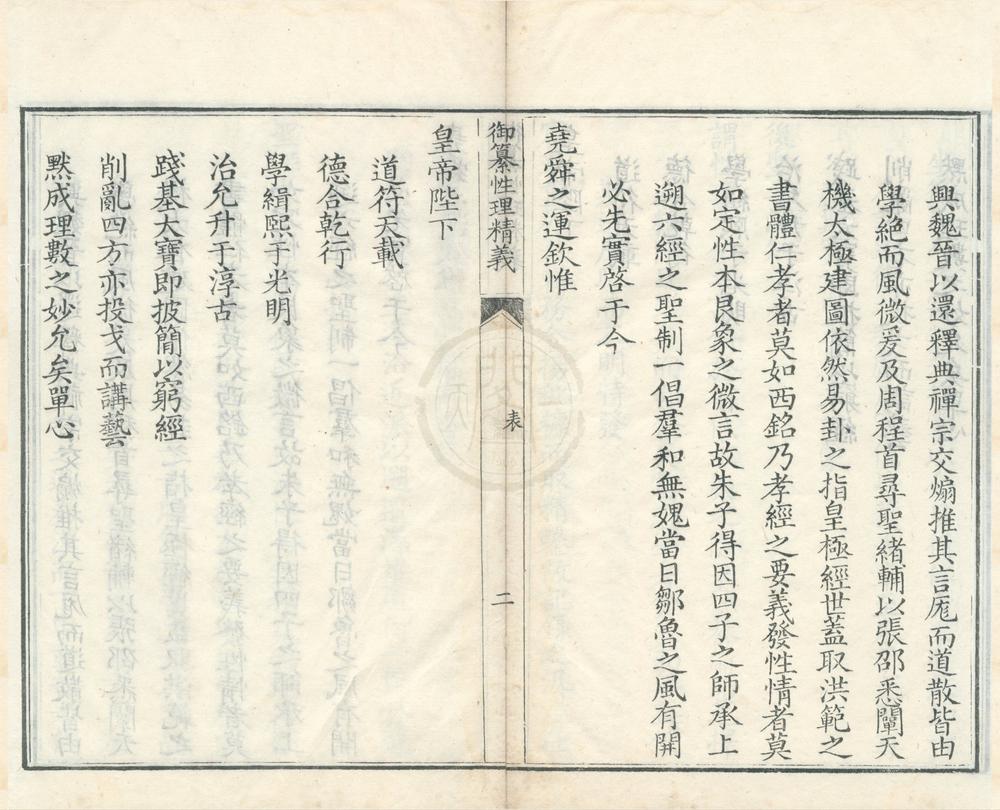 興魏晉以還釋典禪宗交煽推其言厖而道散皆由
學絶而風微爰及周程首尋聖緒輔以張邵悉闡天
機太極建圖依然易卦之指皇極經世蓋取洪範之
書體仁孝者莫如西銘乃孝經之要義發性情者莫
如定性本艮象之微言故朱子得因四子之師承上
遡六經之聖制一倡羣和無媿當日鄒魯之風有開
必先實啓于今
堯舜之運欽惟
御纂性理精義
表
二
皇帝陛下
道符天載
德合乾行
學緝熙于光明
治允升于淳古
踐基大寶即披簡以窮經
削亂四方亦投戈而講藝
默成理數之妙允矣單心